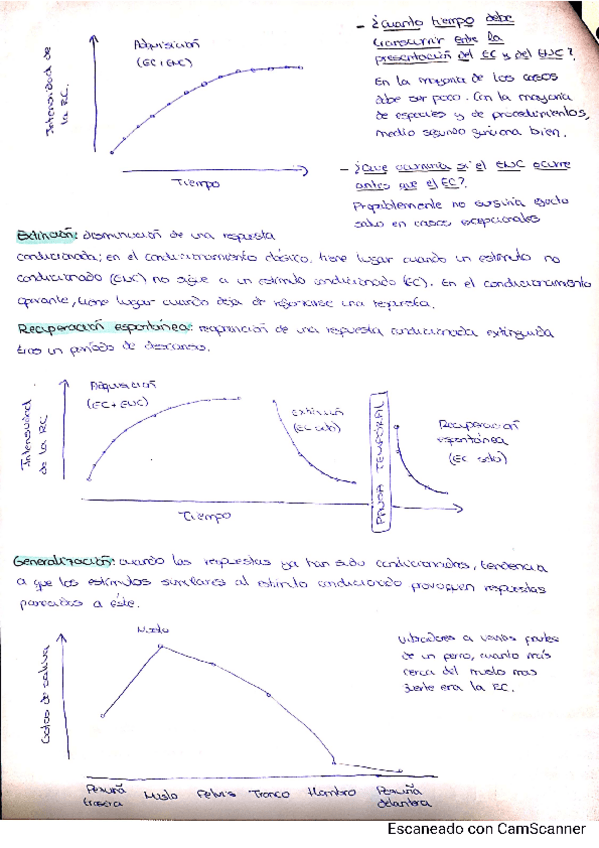 - ¿Cuanto tiempo debe
transcurrir entre la
presentación del EC y del ENC?
En la mayoría de los casos
debe ser poco. Con la mayoría
de especies y de procedimientos,
medio segundo funciona bien.
Intensidad de
la RC.
Adquisición
(EC + ENC)
Tiempo
- ¿Que ocurriría si el ENC ocurre
antes que el EC?
Probablemente no surtiría efecto
salvo en casos excepcionales
Extinción: disminución de una respuesta
condicionada; en el condicionamiento clásico, tiene lugar cuando un estímulo no
condicionado (ENC) no sigue a un estímulo condicionado (EC). En el condicionamiento
operante, tiene lugar cuando deja de reforzarse una respuesta.
Recuperación espontánea: reaparición de una respuesta condicionada extinguida
tras un período de descanso.
Intensidad
de la RC
Adquisición
(EC + ENC)
extinción
(EC solo)
PAUSA TEMPORAL
Recuperación
espontánea
(EC solo)
Tiempo
Generalización: cuando las respuestas ya han sido condicionadas, tendencia
a que los estímulos similares al estímulo condicionado provoquen respuestas
parecidas a éste.
Gotas de saliva
Muslo
Vibradores a varias partes
de un perro, cuanto más
cerca del muslo mas
fuerte era la RC.
Pezuña
trasera
Muslo
Pelvis
Tronco
Hombro
Pezuña
delantera
Escaneado con CamScanner